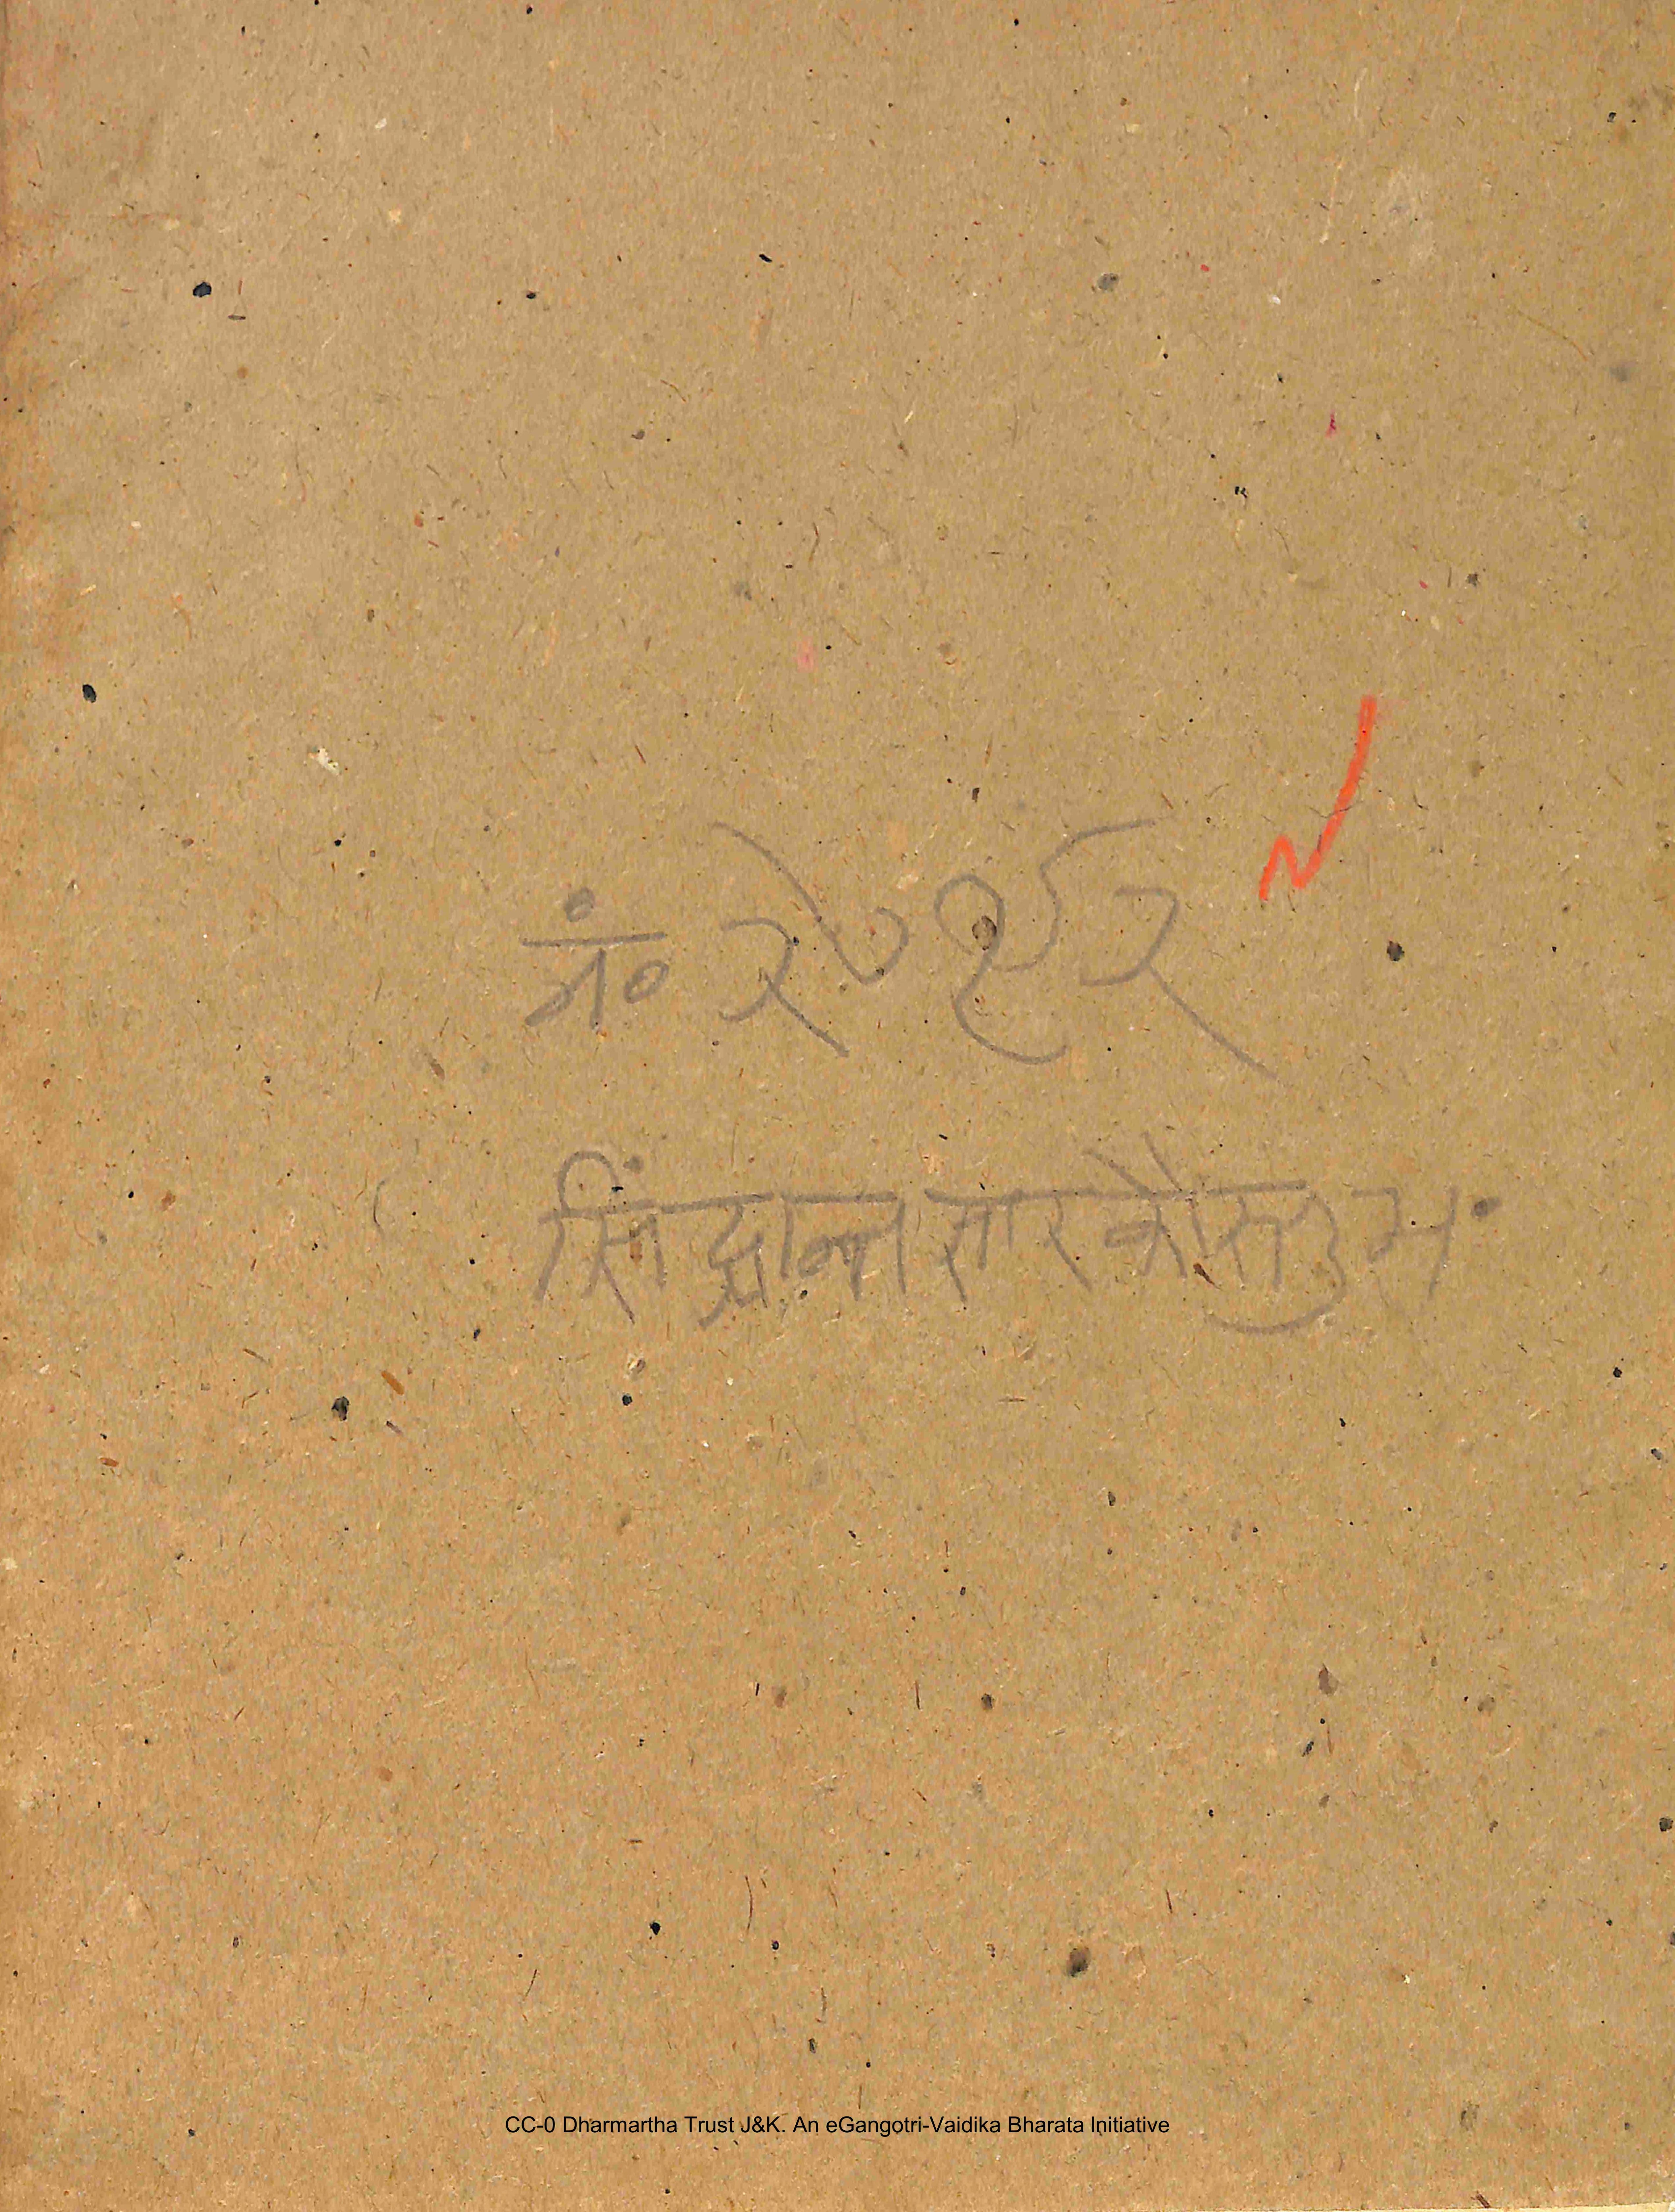 नं० २७९८२
सिंद्धान्त सार कौस्तुभ.
CC-0 Dharmartha Trust J&K. An eGangotri-Vaidika Bharata Initiative